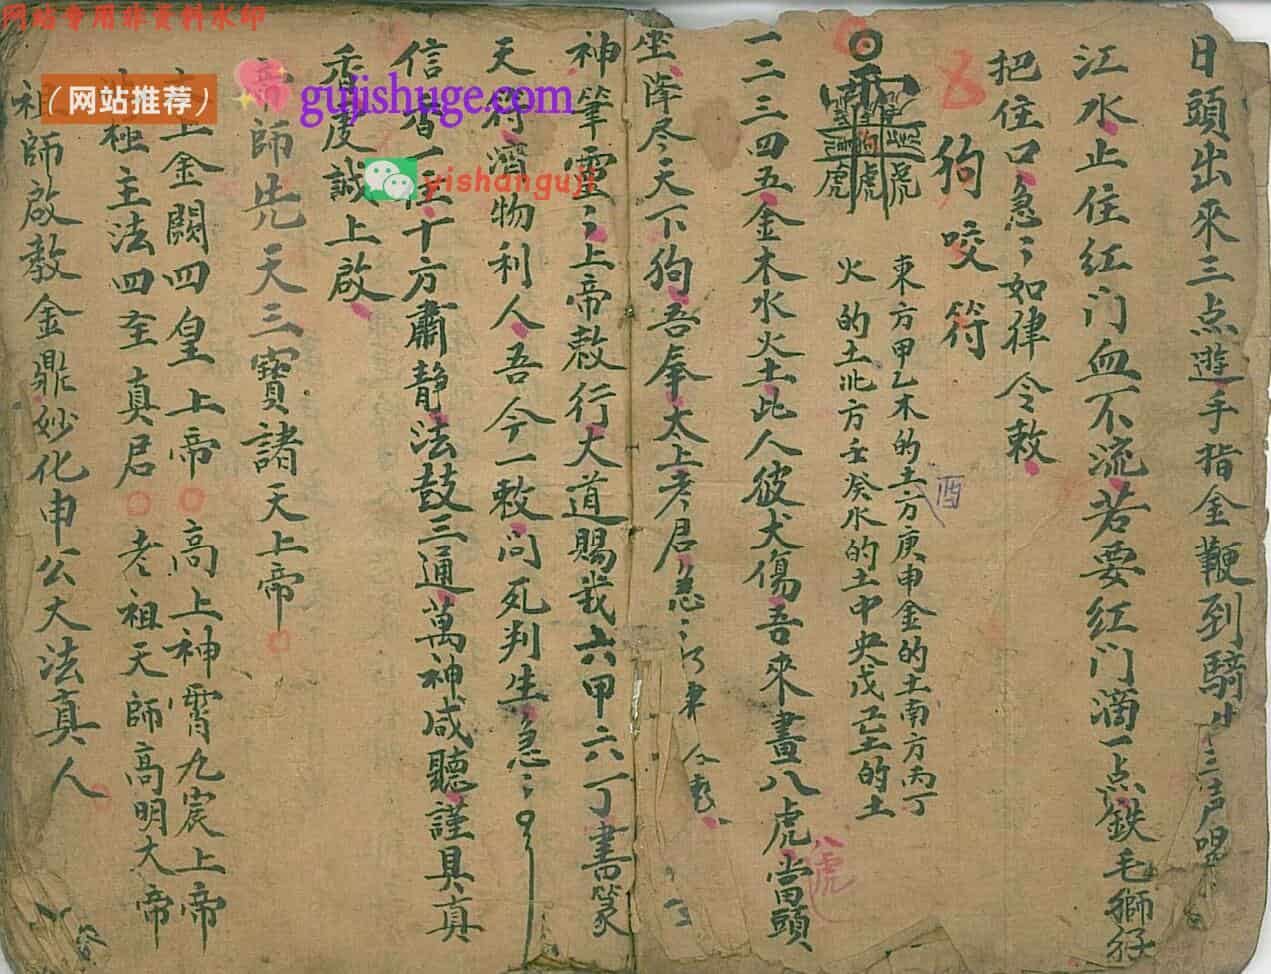 网站专用非资料水印
（网站推荐）
gujishuge.com
yishanguji
日頭出來三点遊手指金鞭到騎
江水止住红门血不流若要红门滴一点鉄毛獅仔
把住口急〻如律令敕
狗咬符
東方甲乙木的土方庚申金的土南方丙丁
酉
火的土北方壬癸水的土中央戊己土的土
虎 狗虎 虎
一二三四五金木水火土此人彼犬傷吾來畫八虎當頭
八虎
坐降尽天下狗吾奉太上老君急〻
神筆靈〻上帝敕行大道賜我六甲六丁書篆
天符濟物利人吾今一敕问死判生急〻
信香一炷十方肅静法鼓三通萬神咸聽謹具真
香虔誠上啟
帝師先天三寶諸天上帝
金闕四皇上帝 高上神霄九宸上帝
極主法四至真君 老祖天師高明大帝
祖師啟教金鼎妙化申公大法真人